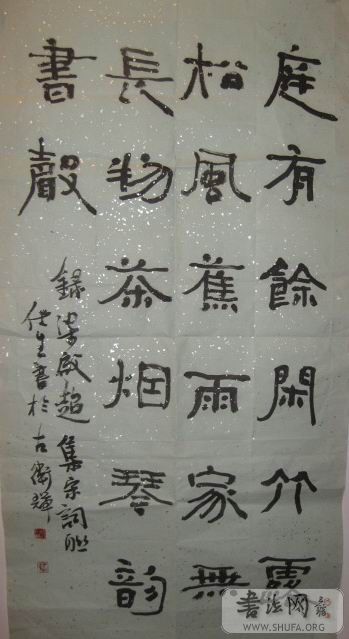 庭有餘閑竹露
松風蕉雨家無
長物茶烟琴韵
書聲
録梁啟超集宋詞聯
生書於古衛輝
书法网
WWW.SHUFA.ORG